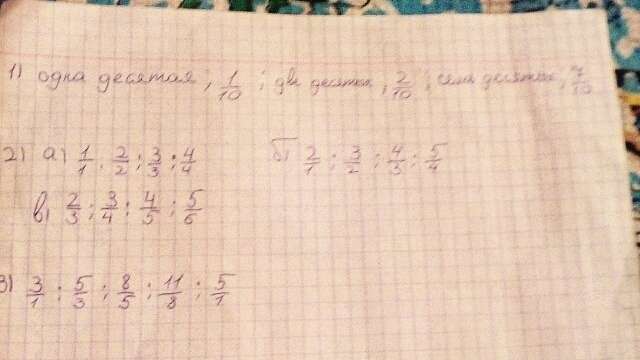 1) одна десятая, 1/10 ; две десятых, 2/10 ; семь десятых, 7/10
2) а) 1/1, 2/2 ; 3/3 ; 4/4 б) 2/1 ; 3/2 ; 4/3 ; 5/4
в) 2/3 ; 3/4 ; 4/5 ; 5/6
3) 3/1 ; 5/3 ; 8/5 ; 11/8 ; 5/1